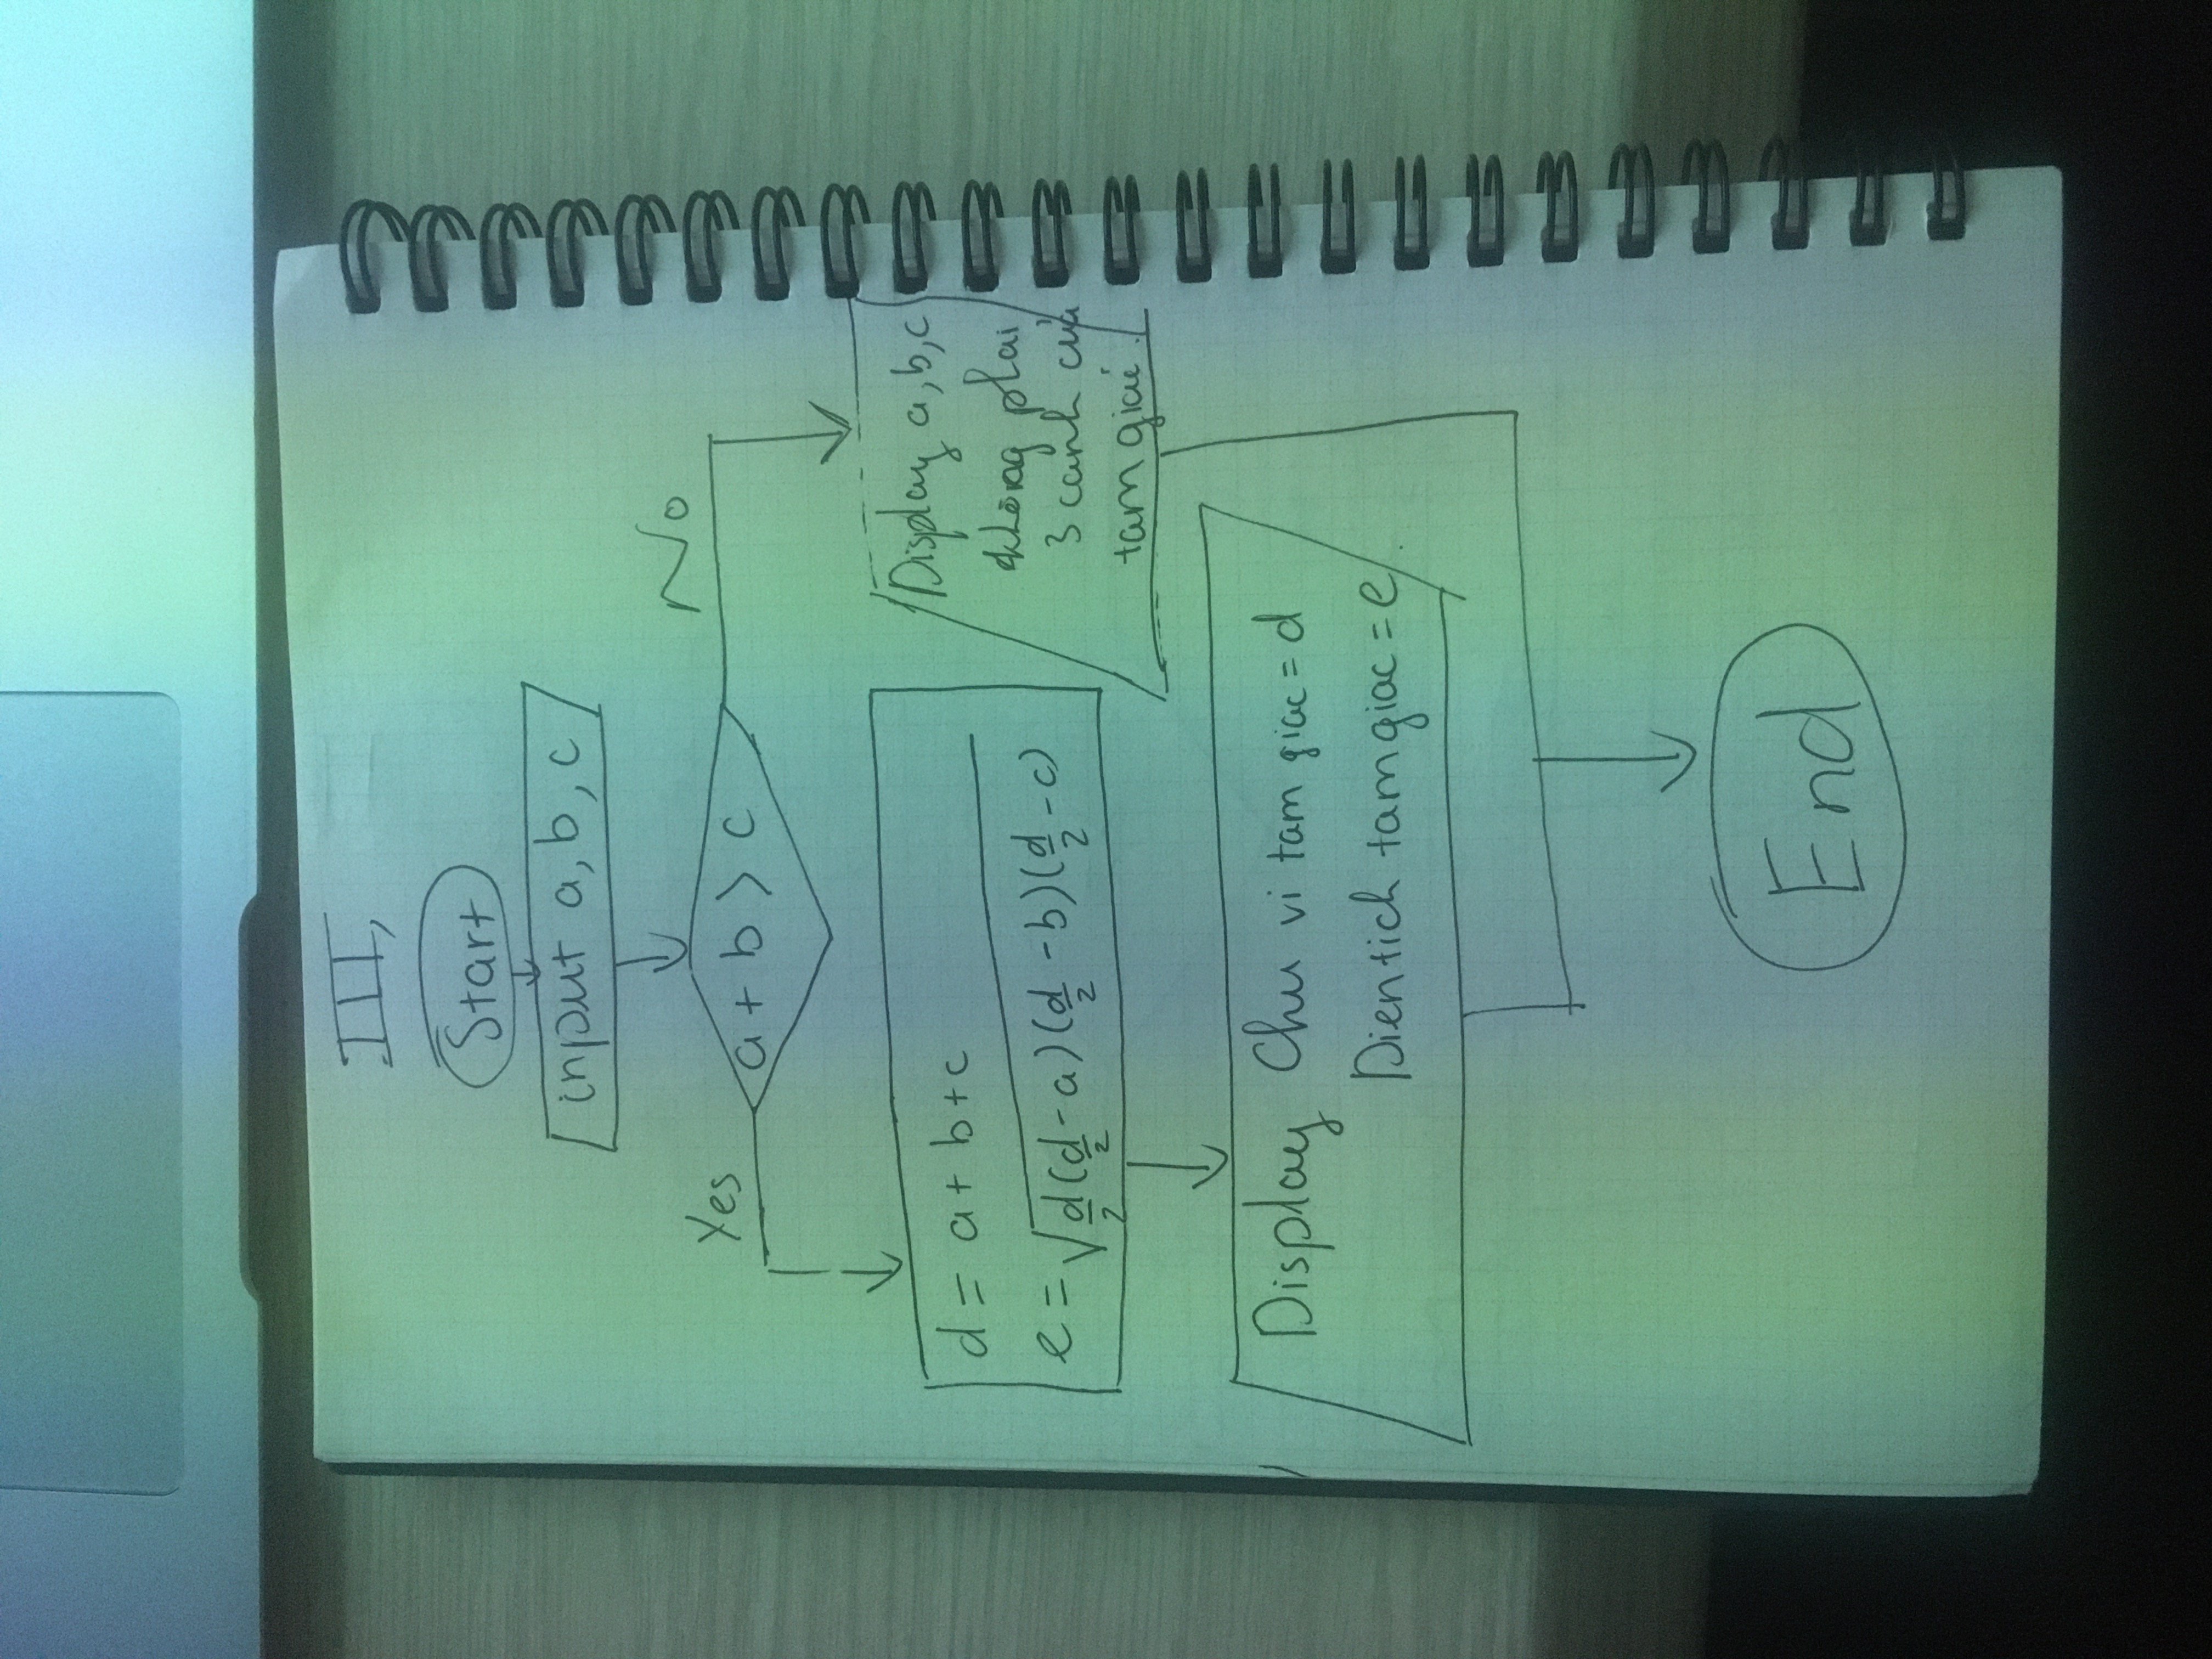 III,
Start
input a, b, c
Yes
No
a + b > c
d = a + b + c
e = √d/2(d/2 - a)(d/2 - b)(d/2 - c)
Display a, b, c
không phai
3 canh của
tam giác.
Display Chu vi tam giac = d
Dien tich tam giac = e.
End